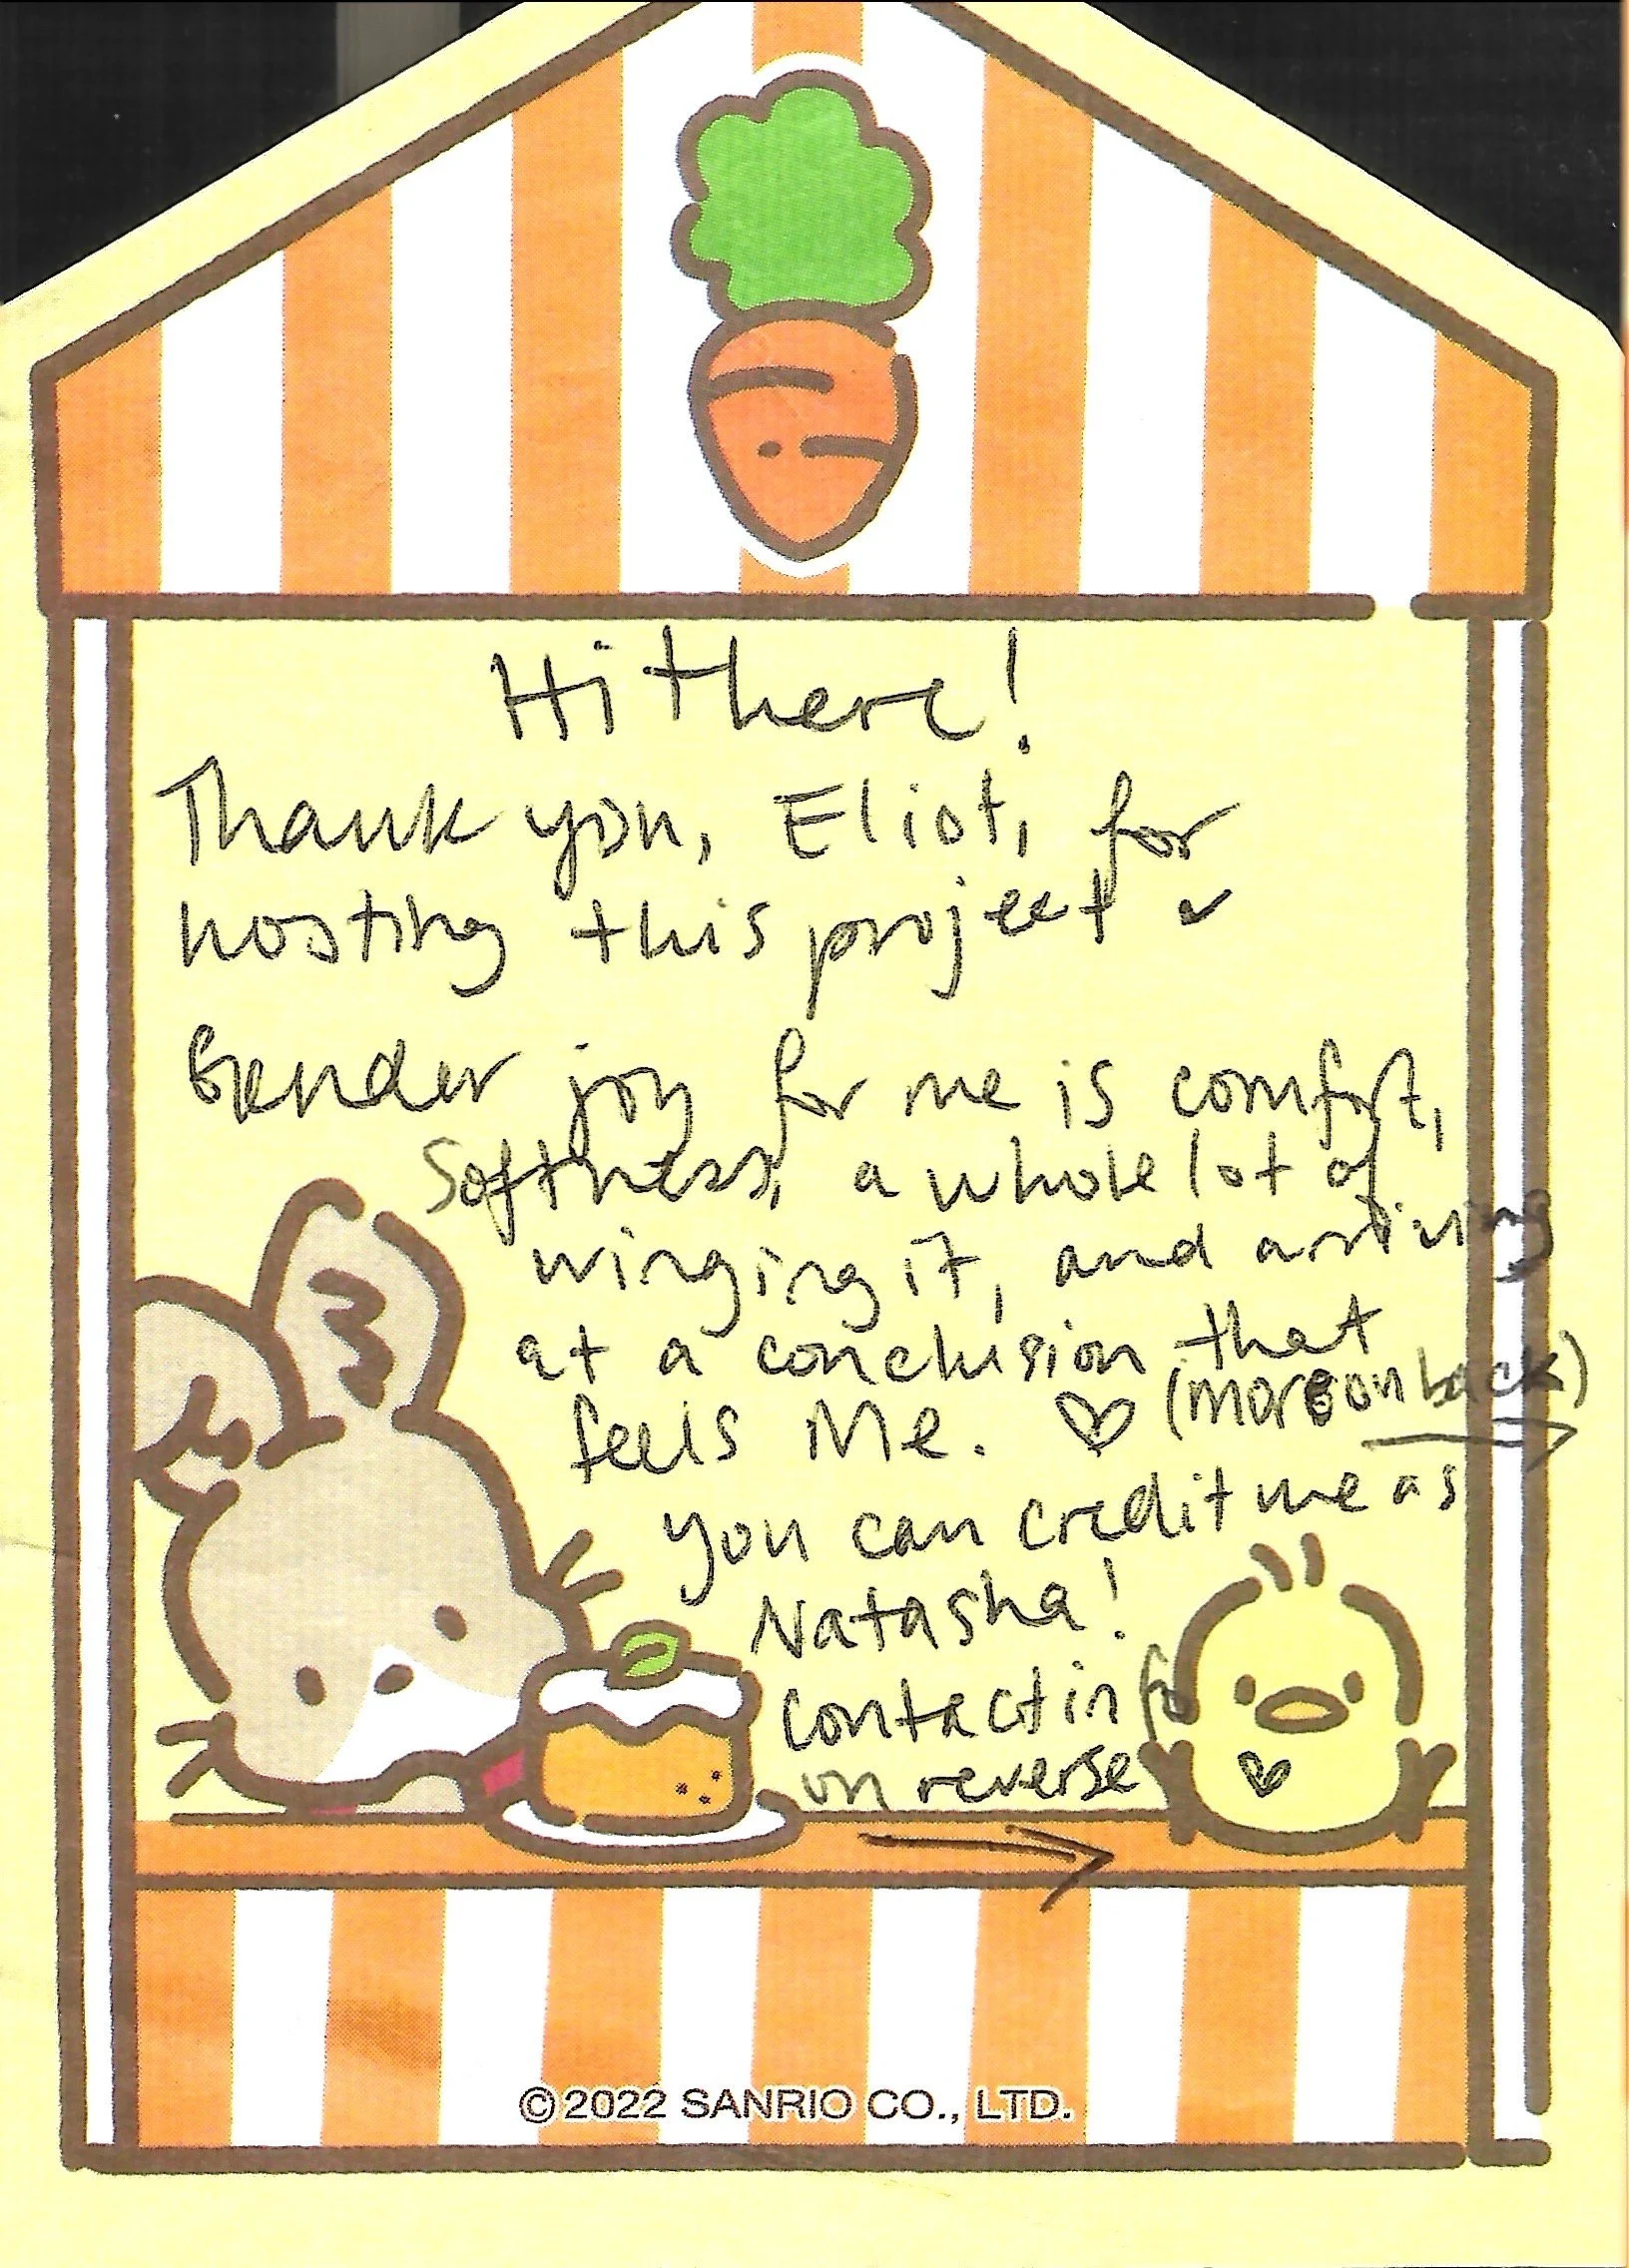 Hi there!
Thank you, Eliot, for
hosting this project ✓
Gender joy for me is comfort,
Softness, a whole lot of
winging it, and arriving
at a conclusion that
feels Me. ♡ (more on back)
you can credit me as
Natasha!
contact info
on reverse
© 2022 SANRIO CO., LTD.